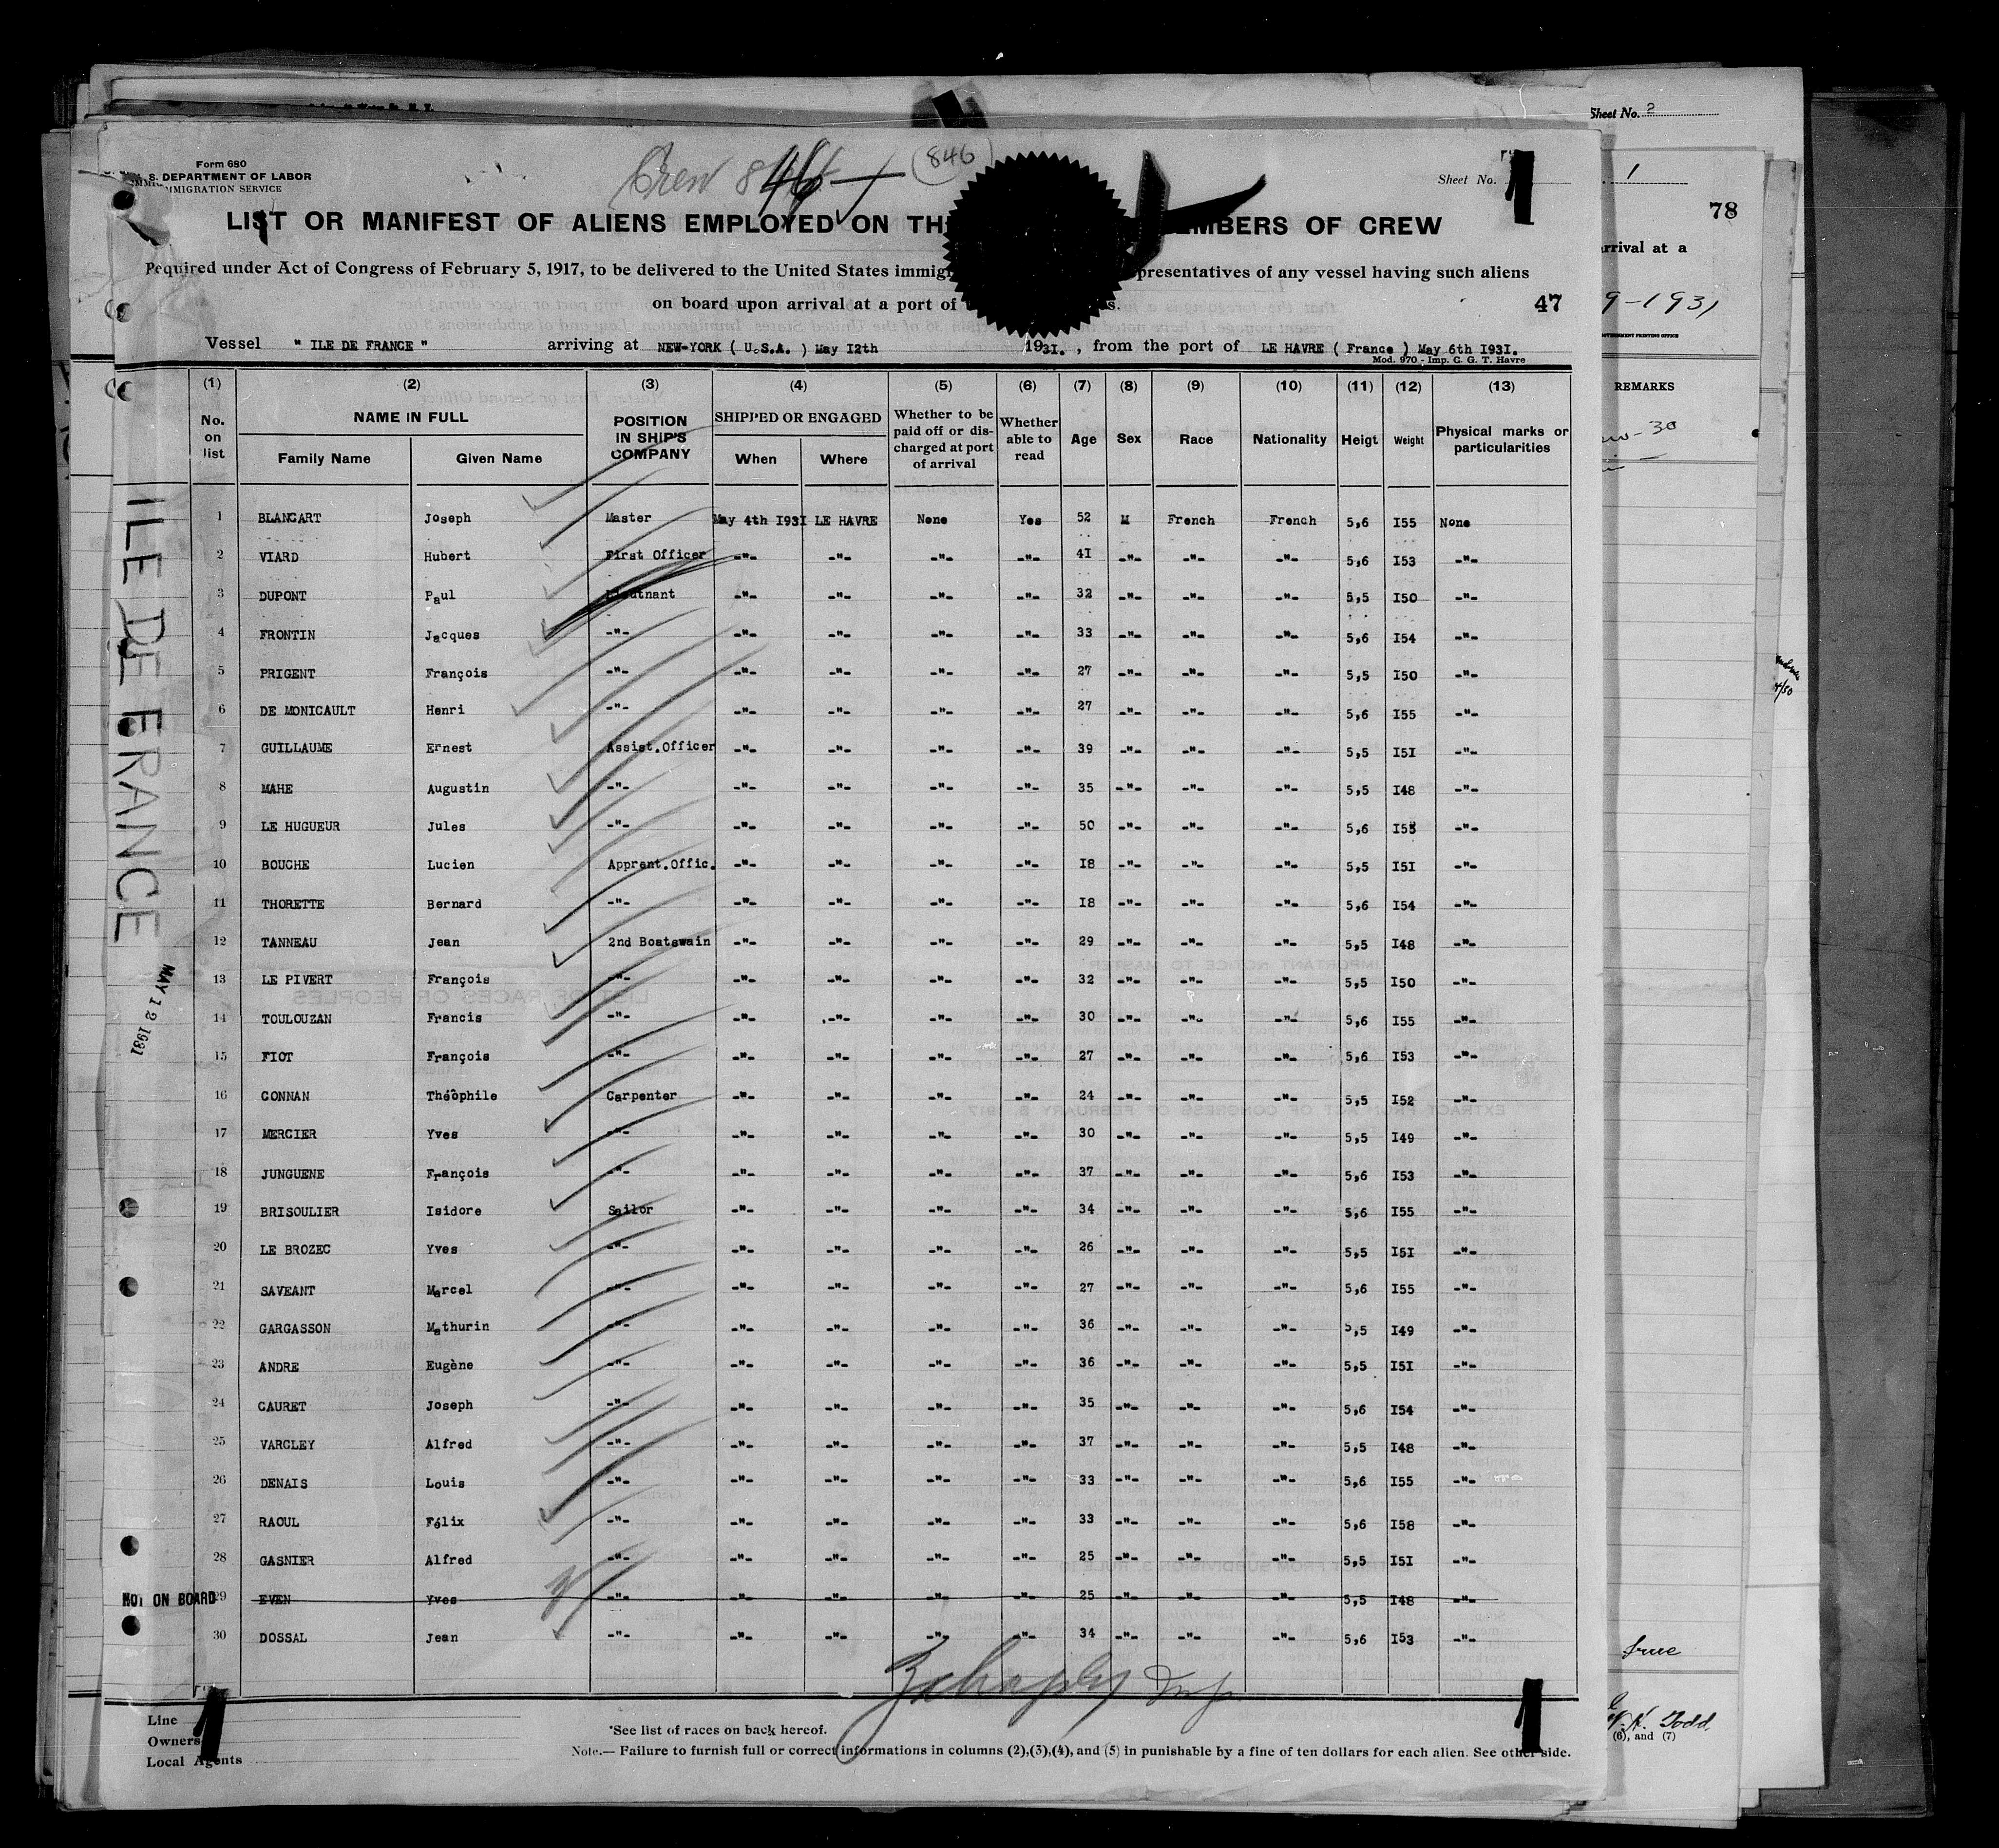 Sheet No. 2
Form 680
S. DEPARTMENT OF LABOR
IMMIGRATION SERVICE
Crew 846
846
Sheet No. 1
1
78
LIST OR MANIFEST OF ALIENS EMPLOYED ON TH MBERS OF CREW
Required under Act of Congress of February 5, 1917, to be delivered to the United States immig presentatives of any vessel having such aliens
on board upon arrival at a port of s.
47
arrival at a
9-1931
Vessel " ILE DE FRANCE " arriving at NEW-YORK ( U.S.A. ) May I2th 1931. , from the port of LE HAVRE ( France ) May 6th I93I.
Mod. 970 - Imp. C. G. T. Havre
REMARKS
(1) (2) (3) (4) (5) (6) (7) (8) (9) (10) (11) (12) (13)
No. on list NAME IN FULL Family Name Given Name POSITION IN SHIP'S COMPANY SHIPPED OR ENGAGED When Where Whether to be paid off or discharged at port of arrival Whether able to read Age Sex Race Nationality Heigt Weight Physical marks or particularities
1 BLANCART Joseph Master May 4th I93I LE HAVRE None Yes 52 M French French 5,6 I55 None
2 VIARD Hubert First Officer -"- -"- -"- -"- 4I -"- -"- -"- 5,6 I53 -"-
3 DUPONT Paul Lieutnant -"- -"- -"- -"- 32 -"- -"- -"- 5,5 I50 -"-
4 FRONTIN Jacques -"- -"- -"- -"- -"- 33 -"- -"- -"- 5,6 I54 -"-
5 PRIGENT François -"- -"- -"- -"- -"- 27 -"- -"- -"- 5,5 I50 -"-
6 DE MONICAULT Henri -"- -"- -"- -"- -"- 27 -"- -"- -"- 5,6 I55 -"-
7 GUILLAUME Ernest Assist.Officer -"- -"- -"- -"- 39 -"- -"- -"- 5,5 I5I -"-
8 MAHE Augustin -"- -"- -"- -"- -"- 35 -"- -"- -"- 5,5 I48 -"-
9 LE HUGUEUR Jules -"- -"- -"- -"- -"- 50 -"- -"- -"- 5,6 I55 -"-
10 BOUCHE Lucien Apprent.Offic. -"- -"- -"- -"- I8 -"- -"- -"- 5,5 I5I -"-
11 THORETTE Bernard -"- -"- -"- -"- -"- I8 -"- -"- -"- 5,6 I54 -"-
12 TANNEAU Jean 2nd Boatswain -"- -"- -"- -"- 29 -"- -"- -"- 5,5 I48 -"-
13 LE PIVERT François -"- -"- -"- -"- -"- 32 -"- -"- -"- 5,5 I50 -"-
14 TOULOUZAN Francis -"- -"- -"- -"- -"- 30 -"- -"- -"- 5,6 I55 -"-
15 FIOT François -"- -"- -"- -"- -"- 27 -"- -"- -"- 5,6 I53 -"-
16 CONNAN Théophile Carpenter -"- -"- -"- -"- 24 -"- -"- -"- 5,5 I52 -"-
17 MERCIER Yves -"- -"- -"- -"- -"- 30 -"- -"- -"- 5,5 I49 -"-
18 JUNGUENE François -"- -"- -"- -"- -"- 37 -"- -"- -"- 5,6 I53 -"-
19 BRISOULIER Isidore Sailor -"- -"- -"- -"- 34 -"- -"- -"- 5,6 I55 -"-
20 LE BROZEC Yves -"- -"- -"- -"- -"- 26 -"- -"- -"- 5,5 I5I -"-
21 SAVEANT Marcel -"- -"- -"- -"- -"- 27 -"- -"- -"- 5,6 I55 -"-
22 GARGASSON Mathurin -"- -"- -"- -"- -"- 36 -"- -"- -"- 5,5 I49 -"-
23 ANDRE Eugène -"- -"- -"- -"- -"- 36 -"- -"- -"- 5,5 I5I -"-
24 CAURET Joseph -"- -"- -"- -"- -"- 35 -"- -"- -"- 5,6 I54 -"-
25 VARCLEY Alfred -"- -"- -"- -"- -"- 37 -"- -"- -"- 5,5 I48 -"-
26 DENAIS Louis -"- -"- -"- -"- -"- 33 -"- -"- -"- 5,6 I55 -"-
27 RAOUL Félix -"- -"- -"- -"- -"- 33 -"- -"- -"- 5,6 I58 -"-
28 GASNIER Alfred -"- -"- -"- -"- -"- 25 -"- -"- -"- 5,5 I5I -"-
NOT ON BOARD 29 EVEN Yves -"- -"- -"- -"- -"- 25 -"- -"- -"- 5,5 I48 -"-
30 DOSSAL Jean -"- -"- -"- -"- -"- 34 -"- -"- -"- 5,6 I53 -"-
ILE DE FRANCE
MAY 12 1931
true
Line
Owners
Local Agents
*See list of races on back hereof.
Note.— Failure to furnish full or correct informations in columns (2),(3),(4), and (5) in punishable by a fine of ten dollars for each alien. See other side.
H. Todd,
(6), and (7)